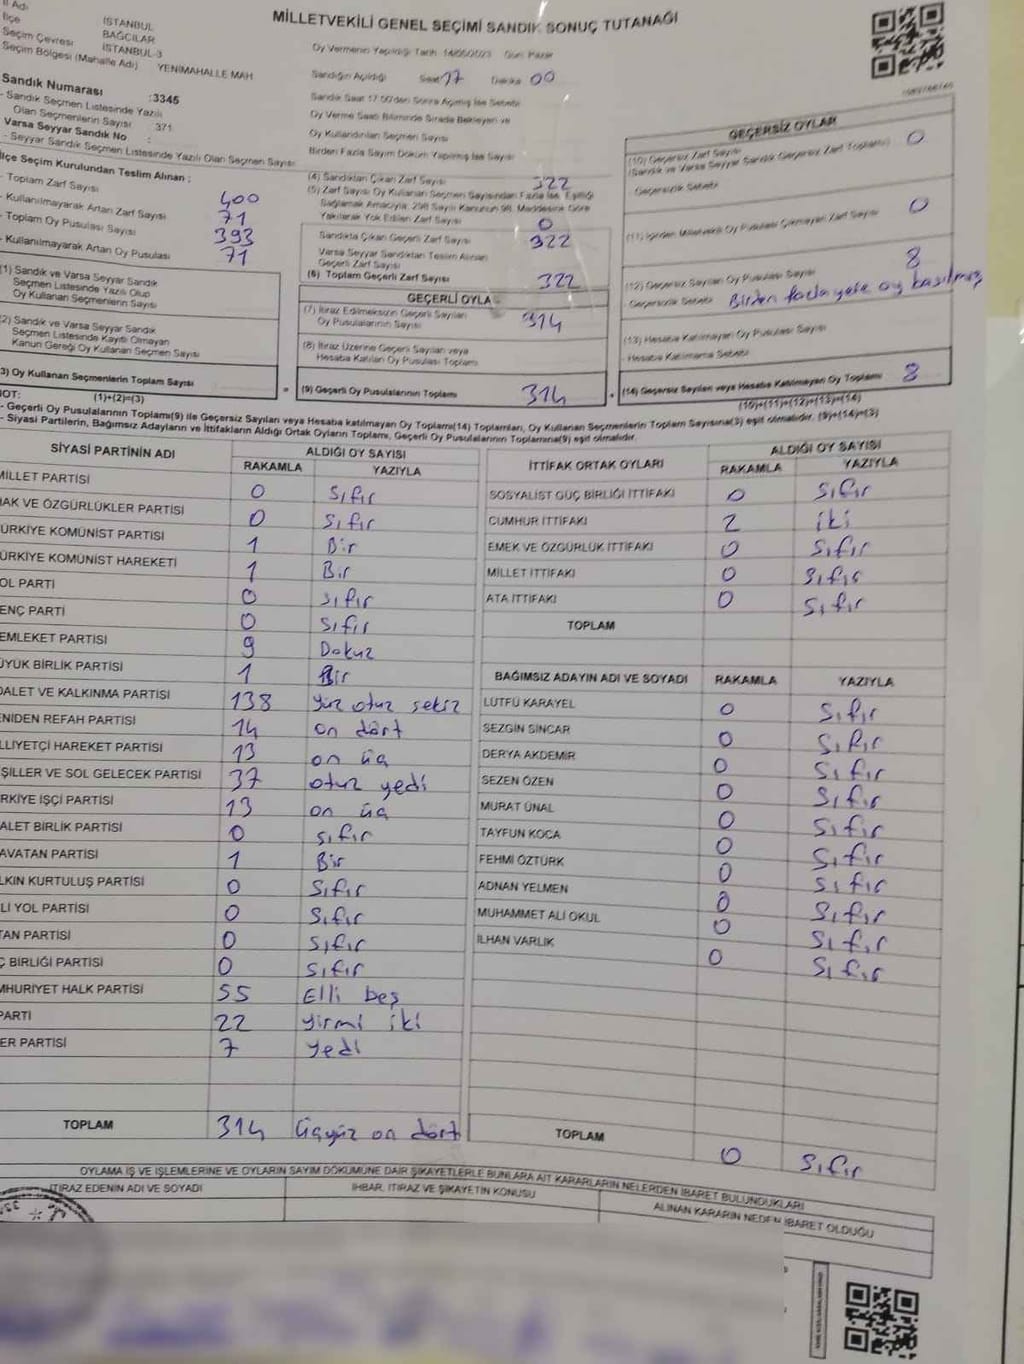 MİLLETVEKİLİ GENEL SEÇİMİ SANDIK SONUÇ TUTANAĞI
İl Adı
İlçe İSTANBUL
Seçim Çevresi BAĞCILAR
Seçim Bölgesi (Mahalle Adı) İSTANBUL-3
YENİMAHALLE MAH
Sandık Numarası :3345
- Sandık Seçmen Listesinde Yazılı
Olan Seçmenlerin Sayısı 371
Varsa Seyyar Sandık No :
- Seyyar Sandık Seçmen Listesinde Yazılı Olan Seçmen Sayısı:
İlçe Seçim Kurulundan Teslim Alınan :
- Toplam Zarf Sayısı 400
- Kullanılmayarak Artan Zarf Sayısı 71
- Toplam Oy Pusulası Sayısı 393
- Kullanılmayarak Artan Oy Pusulası 71
(1) Sandık ve Varsa Seyyar Sandık
Seçmen Listesinde Yazılı Olup
Oy Kullanan Seçmenlerin Sayısı
(2) Sandık ve Varsa Seyyar Sandık
Seçmen Listesinde Kayıtlı Olmayan
Kanun Gereği Oy Kullanan Seçmen Sayısı
3) Oy Kullanan Seçmenlerin Toplam Sayısı
(1)+(2)=(3)
Oy Vermenin Yapıldığı Tarih 14/05/2023 Gün Pazar
Sandığın Açıldığı Saat 17 Dakika 00
Sandık Saat 17.00'den Sonra Açılmış İse Sebebi
Oy Verme Saati Bitiminde Sırada Bekleyen ve
Oy Kullandırılan Seçmen Sayısı
Birden Fazla Sayım Döküm Yapılmış İse Sayısı
(4) Sandıktan Çıkan Zarf Sayısı 322
(5) Zarf Sayısı Oy Kullanan Seçmen Sayısından Fazla İse, Eşitliği
Sağlamak Amacıyla; 298 Sayılı Kanunun 98. Maddesine Göre
Yakılarak Yok Edilen Zarf Sayısı 0
Sandıkta Çıkan Geçerli Zarf Sayısı 322
Varsa Seyyar Sandıktan Teslim Alınan
Geçerli Zarf Sayısı
(6) Toplam Geçerli Zarf Sayısı 322
GEÇERLİ OYLA
(7) İtiraz Edilmeksizin Geçerli Sayılan
Oy Pusulalarının Sayısı 314
(8) İtiraz Üzerine Geçerli Sayılan veya
Hesaba Katılan Oy Pusulası Toplamı
= (9) Geçerli Oy Pusulalarının Toplamı 314
GEÇERSİZ OYLAR
(10) Geçersiz Zarf Sayısı
(Sandık ve Varsa Seyyar Sandık Geçersiz Zarf Toplamı) 0
Geçersizlik Sebebi
(11) İçinden Milletvekili Oy Pusulası Çıkmayan Zarf Sayısı 0
(12) Geçersiz Sayılan Oy Pusulası Sayısı 8
Geçersizlik Sebebi Birden fazla yere oy basılmış
(13) Hesaba Katılmayan Oy Pusulası Sayısı
- Hesaba Katılmama Sebebi
+ (14) Geçersiz Sayılan veya Hesaba Katılmayan Oy Toplamı 8
(10)+(11)+(12)+(13)=(14)
NOT:
- Geçerli Oy Pusulalarının Toplamı(9) ile Geçersiz Sayılan veya Hesaba katılmayan Oy Toplamı(14) Toplamları, Oy Kullanan Seçmenlerin Toplam Sayısına(3) eşit olmalıdır. (9)+(14)=(3)
- Siyasi Partilerin, Bağımsız Adayların ve İttifakların Aldığı Ortak Oyların Toplamı, Geçerli Oy Pusulalarının Toplamına(9) eşit olmalıdır.
SİYASİ PARTİNİN ADI ALDIĞI OY SAYISI
RAKAMLA YAZIYLA
MİLLET PARTİSİ 0 Sıfır
HAK VE ÖZGÜRLÜKLER PARTİSİ 0 Sıfır
TÜRKİYE KOMÜNİST PARTİSİ 1 Bir
TÜRKİYE KOMÜNİST HAREKETİ 1 Bir
OL PARTİ 0 Sıfır
ENÇ PARTİ 0 Sıfır
EMLEKET PARTİSİ 9 Dokuz
ÜYÜK BİRLİK PARTİSİ 1 Bir
DALET VE KALKINMA PARTİSİ 138 yüz otuz sekiz
ENİDEN REFAH PARTİSİ 14 on dört
LLİYETÇİ HAREKET PARTİSİ 13 on üç
ŞİLLER VE SOL GELECEK PARTİSİ 37 otuz yedi
RKİYE İŞÇİ PARTİSİ 13 on üç
ALET BİRLİK PARTİSİ 0 Sıfır
AVATAN PARTİSİ 1 Bir
LKIN KURTULUŞ PARTİSİ 0 Sıfır
Lİ YOL PARTİSİ 0 Sıfır
TAN PARTİSİ 0 Sıfır
Ç BİRLİĞİ PARTİSİ 0 Sıfır
MHURİYET HALK PARTİSİ 55 Elli beş
PARTİ 22 yirmi iki
ER PARTİSİ 7 yedi
TOPLAM 314 Üçyüz on dört
İTTİFAK ORTAK OYLARI ALDIĞI OY SAYISI
RAKAMLA YAZIYLA
SOSYALİST GÜÇ BİRLİĞİ İTTİFAKI 0 Sıfır
CUMHUR İTTİFAKI 2 iki
EMEK VE ÖZGÜRLÜK İTTİFAKI 0 Sıfır
MİLLET İTTİFAKI 0 Sıfır
ATA İTTİFAKI 0 Sıfır
TOPLAM
BAĞIMSIZ ADAYIN ADI VE SOYADI RAKAMLA YAZIYLA
LÜTFÜ KARAYEL 0 Sıfır
SEZGİN SİNCAR 0 Sıfır
DERYA AKDEMİR 0 Sıfır
SEZEN ÖZEN 0 Sıfır
MURAT ÜNAL 0 Sıfır
TAYFUN KOCA 0 Sıfır
FEHMİ ÖZTÜRK 0 Sıfır
ADNAN YELMEN 0 Sıfır
MUHAMMET ALİ OKUL 0 Sıfır
İLHAN VARLIK 0 Sıfır
TOPLAM 0 Sıfır
OYLAMA İŞ VE İŞLEMLERİNE VE OYLARIN SAYIM DÖKÜMÜNE DAİR ŞİKAYETLERLE BUNLARA AİT KARARLARIN NELERDEN İBARET BULUNDUKLARI
İTİRAZ EDENİN ADI VE SOYADI İHBAR, İTİRAZ VE ŞİKAYETİN KONUSU ALINAN KARARIN NEDEN İBARET OLDUĞU